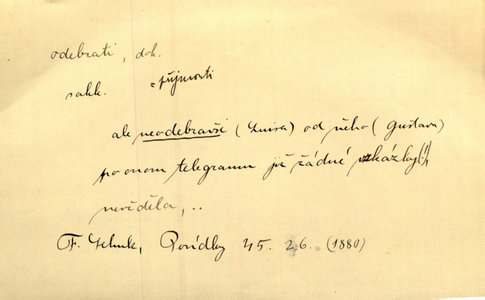 odebrati, dok.
sakk. = přijmouti
ale neodebravši (Luisa) od něho (Gustava)
po onom telegramu již žádné vzkázky(!)
nevěděla, ..
F. Schulz, Povídky 45. 26. (1880)